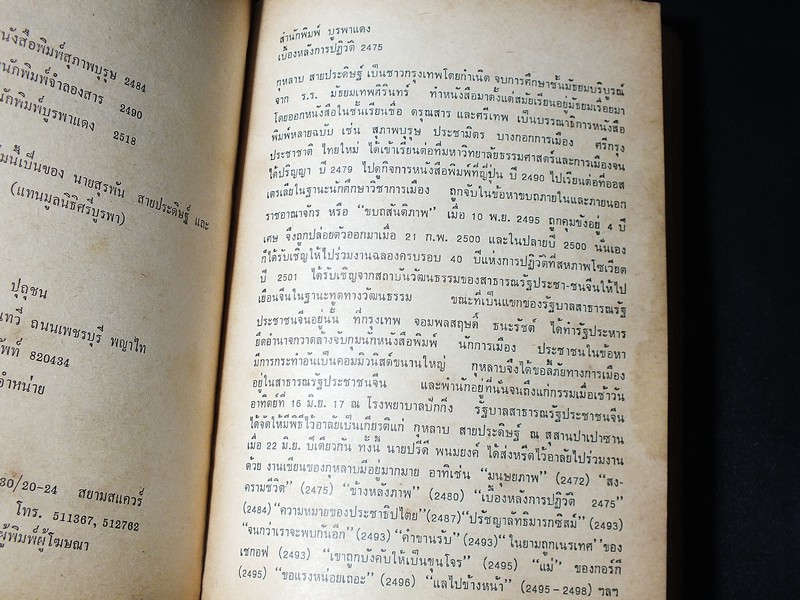 นังสือพิมพ์สุภาพบุรุษ 2484
นักพิมพ์จำลองสาร 2490
นักพิมพ์บูรพาแดง 2518
มนี้เป็นของ นายสุรพัน สายประดิษฐ์ และ
(แทนมูลนิธิศรีบูรพา)
ปุถุชน
นทวี ถนนเพชรบุรี พญาไท
ศัพท์ 820434
จำหน่าย
30/20-24 สยามสแควร์
โทร. 511367, 512762
ผู้พิมพ์ผู้โฆษณา
สำนักพิมพ์ บูรพาแดง
เบื้องหลังการปฏิวัติ 2475
กุหลาบ สายประดิษฐ์ เป็นชาวกรุงเทพโดยกำเนิด จบการศึกษาชั้นมัธยมบริบูรณ์
จาก ร.ร. มัธยมเทพศิรินทร์ ทำหนังสือมาตั้งแต่สมัยเรียนอยู่มัธยมเรื่อยมา
โดยออกหนังสือในชั้นเรียนชื่อ ดรุณสาร และศรีเทพ เป็นบรรณาธิการหนังสือ
พิมพ์หลายฉบับ เช่น สุภาพบุรุษ ประชามิตร บางกอกการเมือง ศรีกรุง
ประชาชาติ ไทยใหม่ ได้เข้าเรียนต่อที่มหาวิทยาลัยธรรมศาสตร์และการเมืองจน
ได้ปริญญา ปี 2479 ไปดูกิจการหนังสือพิมพ์ที่ญี่ปุ่น ปี 2490 ไปเรียนต่อที่ออส
เตรเลียในฐานะนักศึกษาวิชาการเมือง ถูกจับในข้อหาขบถภายในและภายนอก
ราชอาณาจักร หรือ “ขบถสันติภาพ” เมื่อ 10 พ.ย. 2495 ถูกคุมขังอยู่ 4 ปี
เศษ จึงถูกปล่อยตัวออกมาเมื่อ 21 ก.พ. 2500 และในปลายปี 2500 นั้นเอง
ก็ได้รับเชิญให้ไปร่วมงานฉลองครบรอบ 40 ปีแห่งการปฏิวัติที่สหภาพโซเวียต
ปี 2501 ได้รับเชิญจากสถาบันวัฒนธรรมของสาธารณรัฐประชา-ชนจีนให้ไป
เยือนจีนในฐานะทูตทางวัฒนธรรม ขณะที่เป็นแขกของรัฐบาลสาธารณรัฐ
ประชาชนจีนอยู่นั้น ที่กรุงเทพ จอมพลสฤษดิ์ ธนะรัชต์ ได้ทำรัฐประหาร
ยึดอำนาจกวาดล้างจับกุมนักหนังสือพิมพ์ นักการเมือง ประชาชนในข้อหา
มีการกระทำอันเป็นคอมมิวนิสต์ขนานใหญ่ กุหลาบจึงได้ขอลี้ภัยทางการเมือง
อยู่ในสาธารณรัฐประชาชนจีน และพำนักอยู่ที่นั่นจนถึงแก่กรรมเมื่อเช้าวัน
อาทิตย์ที่ 16 มิ.ย. 17 ณ โรงพยาบาลปักกิ่ง รัฐบาลสาธารณรัฐประชาชนจีน
ได้จัดให้มีพิธีไว้อาลัยเป็นเกียรติแก่ กุหลาบ สายประดิษฐ์ ณ สุสานปาเปาซาน
เมื่อ 22 มิ.ย. ปีเดียวกัน ทั้งนี้ นายปรีดี พนมยงค์ ได้ส่งหรีดไว้อาลัยไปร่วมงาน
ด้วย งานเขียนของกุหลาบมีอยู่มากมาย อาทิเช่น “มนุษยภาพ” (2472) “สง-
ครามชีวิต” (2475) “ข้างหลังภาพ” (2480) “เบื้องหลังการปฏิวัติ 2475”
(2484) “ความหมายของประชาธิปไตย” (2487) “ปรัชญาลัทธิมารกซิสม์” (2493)
“จนกว่าเราจะพบกันอีก” (2493) “คำขานรับ” (2493) “ในยามถูกเนรเทศ” ของ
เชกอฟ (2493) “เขาถูกบังคับให้เป็นขุนโจร” (2495) “แม่” ของกอร์กี
(2495) “ขอแรงหน่อยเถอะ” (2496) “แลไปข้างหน้า” (2495-2498) ฯลฯ